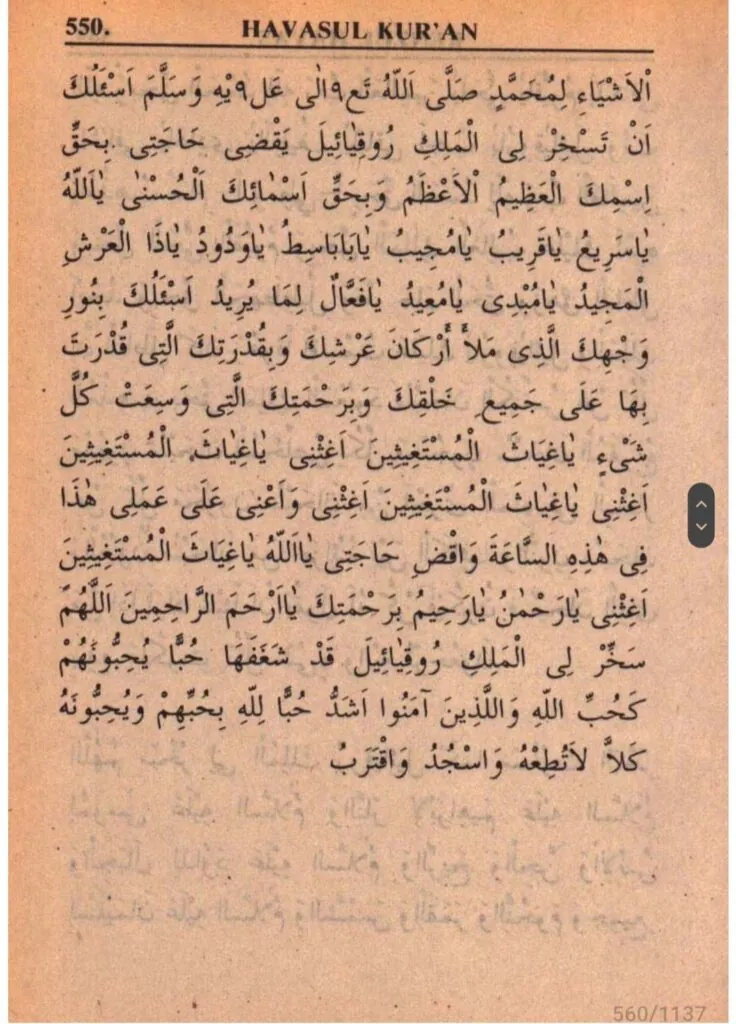 550. HAVASUL KUR'AN
اْلاَشْيَاءِ لِمُحَمَّدٍ صَلَّى اَللّٰهُ تَع٩الٰى عَل٩يْهِ وَسَلَّمَ اَسْئَلُكَ
اَنْ تَسْخِرْ لِى الْمَلِكِ رُوقِيٰائِيلَ يَقْضِى حَاجَتِى بِحَقِّ
اِسْمِكَ الْعَظِيمُ اْلاَعْظَمُ وَبِحَقِّ اَسْمٰائِكَ اَلْحُسْنٰى يٰااَللّٰهُ
يٰاسَرِيعُ يٰاقَرِيبُ يٰامُجِيبُ يٰابَابَاسِطُ يٰاوَدُودُ يٰاذَا الْعَرْشِ
الْمَجِيدُ يٰامُبْدِى يٰامُعِيدُ يٰافَعَّالٌ لِمَا يُرِيدُ اَسْئَلُكَ بِنُورِ
وَجْهِكَ الَّذِى مَلأَ أَرْكَانَ عَرْشِكَ وَبِقُدْرَتِكَ الَّتِى قُدْرَتَ
بِهَا عَلَى جَمِيعِ خَلْقِكَ وَبَرَحْمَتِكَ الَّتِى وَسِعَتْ كُلَّ
شَىْءٍ يٰاغِيَاثَ الْمُسْتَغِيثِينَ اَغِثْنِى يٰاغِيٰاثَ الْمُسْتَغِيثِينَ
اَغِثْنِى يٰاغِيٰاثَ الْمُسْتَغِيثِينَ اَغِثْنِى وَاَعْنِى عَلَى عَمَلِى هٰذَا
فِى هٰذِهِ السَّاعَةَ وَاقْضِ حَاجَتِى يٰااَللّٰهُ يٰاغِيَاثَ الْمُسْتَغِيثِينَ
اَغِثْنِى يٰارَحْمٰنُ يٰارَحِيمُ بِرَحْمَتِكَ يٰااَرْحَمَ الرَّاحِمِينَ اَللَّهُمَّ
سَخِّرْ لِى الْمَلِكِ رُوقِيٰائِيلَ قَدْ شَغَفَهَا حُبًّا يُحِبُّونَهُمْ
كَحُبِّ اللّٰهِ وَاللَّذِينَ آمَنُوا اَشَدُّ حُبًّا لِلّٰهِ بِحُبِّهِمْ وَيُحِبُّونَهُ
كَلاَّ لاَتُطِعْهُ وَاسْجُدُ وَاقْتَرَبُ
560/1137